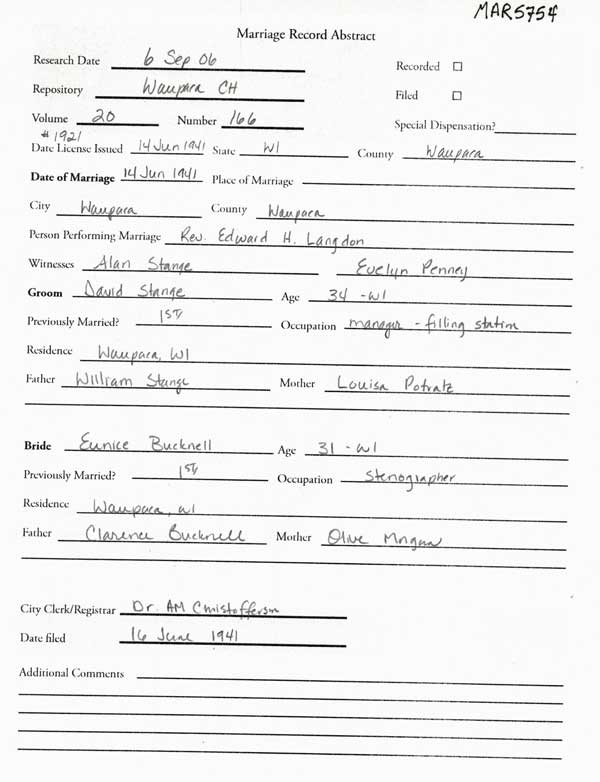 MAR5754
Marriage Record Abstract
Research Date 6 Sep 06 Recorded
Repository Waupara CH Filed
Volume 20 Number 166 Special Dispensation?
#1921
Date License Issued 14 Jun 1941 State WI County Waupara
Date of Marriage 14 Jun 1941 Place of Marriage
City Waupara County Waupara
Person Performing Marriage Rev. Edward H. Langdon
Witnesses Alan Stange Evelyn Penney
Groom David Stange Age 34 - WI
Previously Married? 1st Occupation manager - filling station
Residence Waupara, WI
Father William Stange Mother Louisa Potratz
Bride Eunice Bucknell Age 31 - WI
Previously Married? 1st Occupation Stenographer
Residence Waupara, WI
Father Clarence Bucknell Mother Olive
City Clerk/Registrar Dr. AM Christofferson
Date filed 16 June 1941
Additional Comments